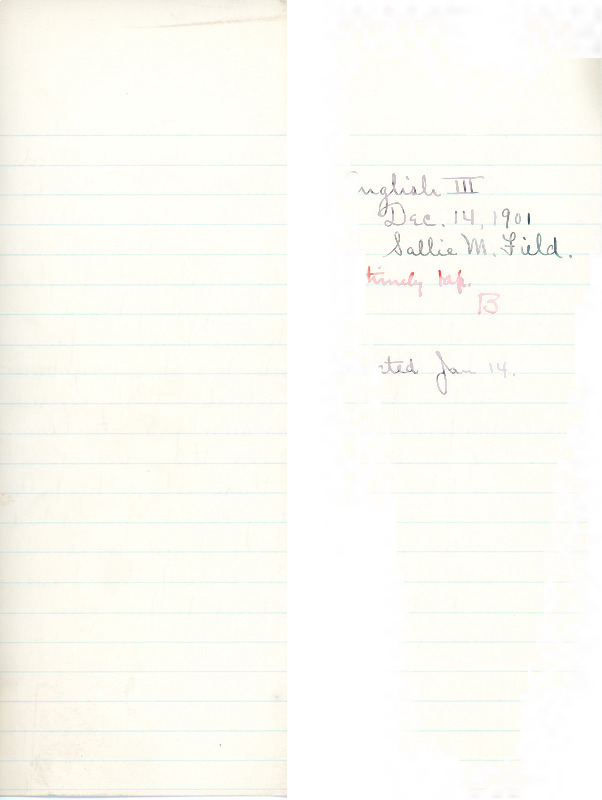 nglish III
Dec. 14, 1901
Sallie M. Field.
timely
B
cted Jan 14.